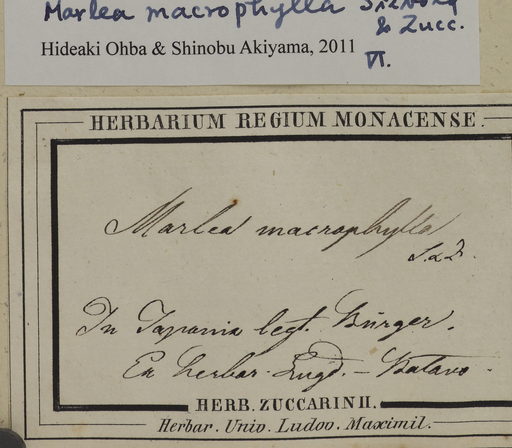 Marlea macrophylla Siebold
& Zucc.
Hideaki Ohba & Shinobu Akiyama, 2011
VI.
HERBARIUM REGIUM MONACENSE.
Marlea macrophylla
S. & Z.
In Japonia legt. Bürger.
Ex herbar. Lugd. - Batavo.
HERB. ZUCCARINII.
Herbar. Univ. Ludov. Maximil.